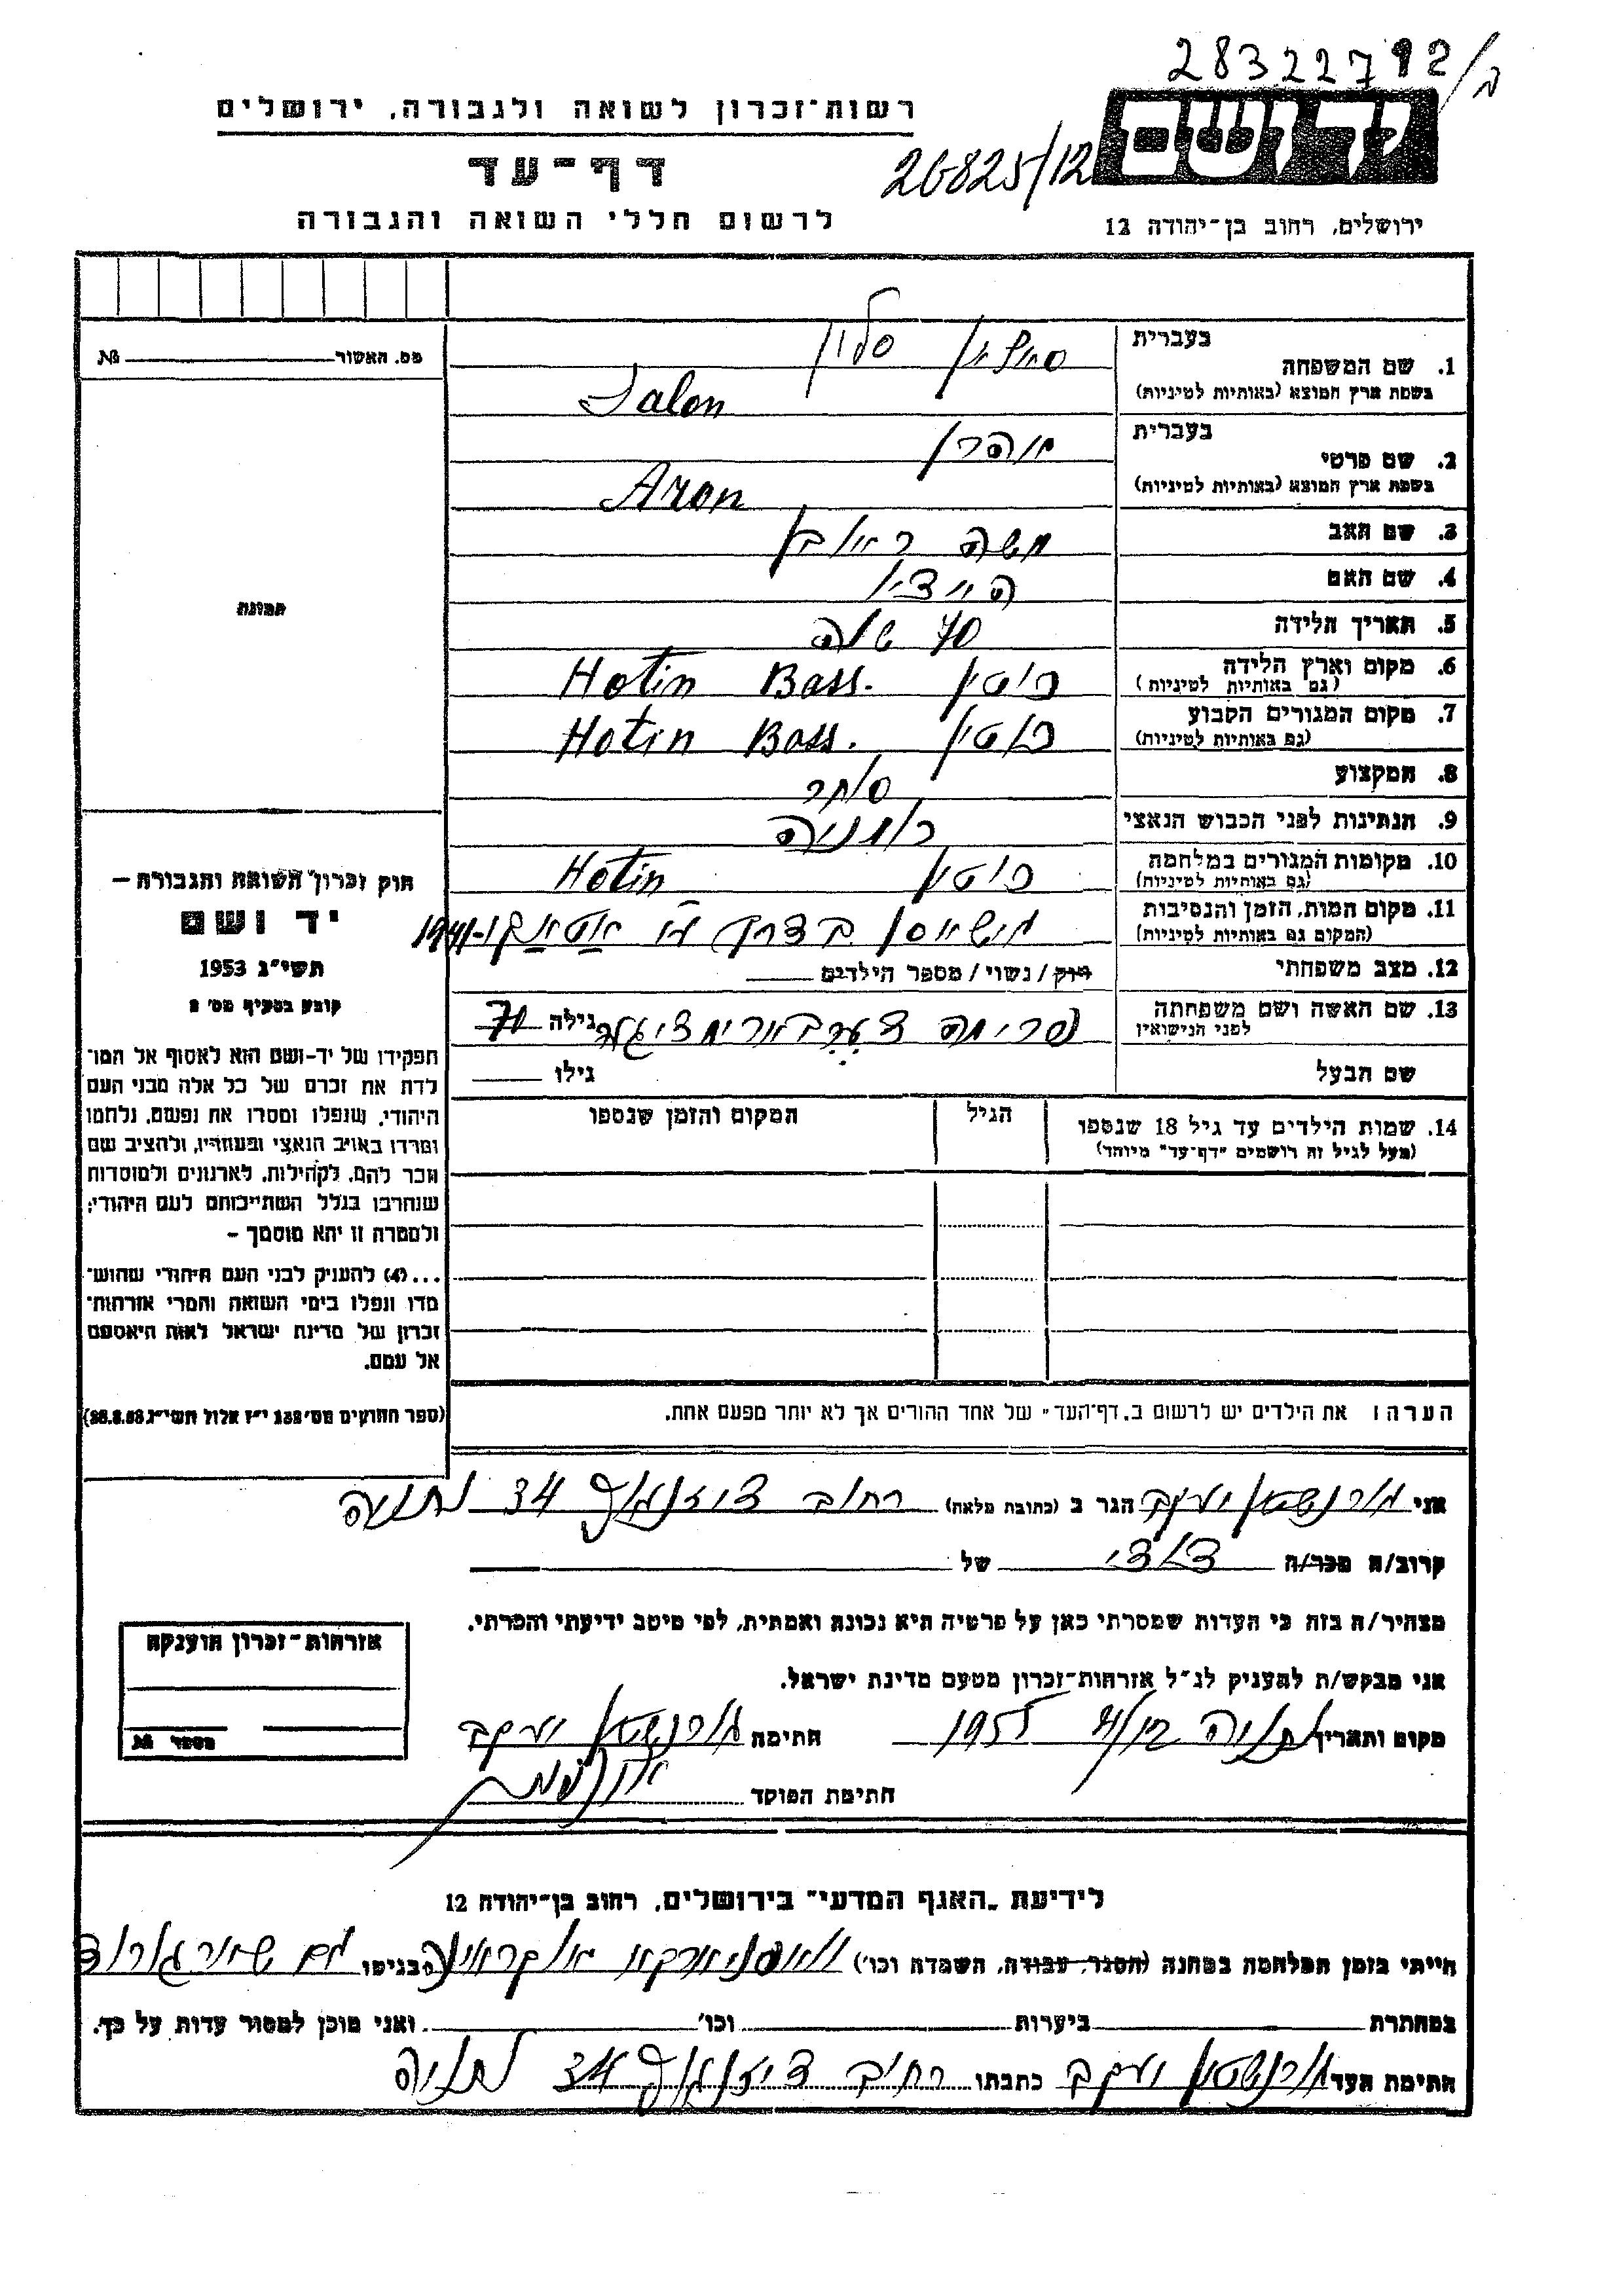 28322792/ה
רשות־זכרון לשואה ולגבורה, ירושלים
דף־עד
26825/12
לרשום חללי השואה והגבורה
ירושלים, רחוב בן־יהודה 12
מס. האשור № 
1. שם המשפחה
בעברית סלון
בשפת ארץ המוצא (באותיות לטיניות) Salon
2. שם פרטי
בעברית אהרן
בשפת ארץ המוצא (באותיות לטיניות) Aron
3. שם האב משה ראובן
4. שם האם
5. תאריך הלידה 70 שנה
6. מקום וארץ הלידה (גם באותיות לטיניות) חוטין Hotin Bass.
7. מקום המגורים הקבוע (גם באותיות לטיניות) חוטין Hotin Bass.
8. המקצוע סוחר
9. הנתינות לפני הכבוש הנאצי רומניה
10. מקומות המגורים במלחמה (גם באותיות לטיניות) חוטין Hotin
11. מקום המות, הזמן והנסיבות (המקום גם באותיות לטיניות) בדרך 1941
12. מצב משפחתי רוק / נשוי / מספר הילדים
13. שם האשה ושם משפחתה לפני הנישואין גילה 70
שם הבעל גילו
14. שמות הילדים עד גיל 18 שנספו (מעל לגיל זה רושמים "דף־עד" מיוחד) הגיל המקום והזמן שנספו
הערה: את הילדים יש לרשום ב„דף־העד" של אחד ההורים אך לא יותר מפעם אחת.
תמונה
חוק זכרון השואה והגבורה —
יד ושם
תשי"ג 1953
קובע בסעיף מס' 2
תפקידו של יד־ושם הוא לאסוף אל המו־
לדת את זכרם של כל אלה מבני העם
היהודי, שנפלו ומסרו את נפשם, נלחמו
ומרדו באויב הנאצי ובעוזריו, ולהציב שם
וזכר להם, לקהילות, לארגונים ולמוסדות
שנחרבו בגלל השתייכותם לעם היהודי;
ולמטרה זו יהא מוסמך —
...(4) להעניק לבני העם היהודי שהוש־
מדו ונפלו בימי השואה והמרי אזרחות־
זכרון של מדינת ישראל לאות היאספם
אל עמם.
(ספר החוקים מס' 132 י"ז אלול תשי"ג 28.8.53)
אני גורנשטין יעקב הגר ב (כתובת מלאה) רחוב דיזנגוף 34 נתניה
קרוב/ה מכר/ה דודי של
מצהיר/ה בזה כי העדות שמסרתי כאן על פרטיה היא נכונה ואמתית, לפי מיטב ידיעתי והכרתי.
אני מבקש/ת להעניק לנ"ל אזרחות־זכרון מטעם מדינת ישראל.
מקום ותאריך נתניה 1955 חתימה גורנשטין יעקב
חתימת הפוקד
אזרחות־זכרון הוענקה
מספר №
לידיעת „האגף המדעי" בירושלים, רחוב בן־יהודה 12
הייתי בזמן המלחמה במחנה (הסגר, עבודה, השמדה וכו') בגיטו
במחתרת ביערות וכו' ואני מוכן למסור עדות על כך.
חתימת העד גורנשטין יעקב כתבתו רחוב דיזנגוף 34 נתניה